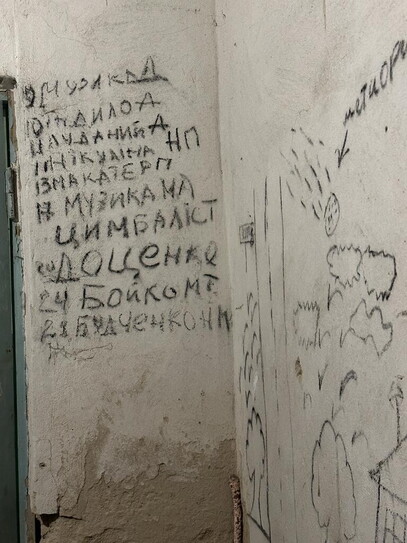 9 МУЗИКА Д
10 ДИЛО А
11 ЛУДАНИЙ А
11 НІКУЛІНА НП
13 МАКАТЕР П
17 МУЗИКА МЛ
ЦИМБАЛІСТ
ДОЦЕНКО
24 БОЙКО МТ
28 БУДЧЕНКО НМ
метиори